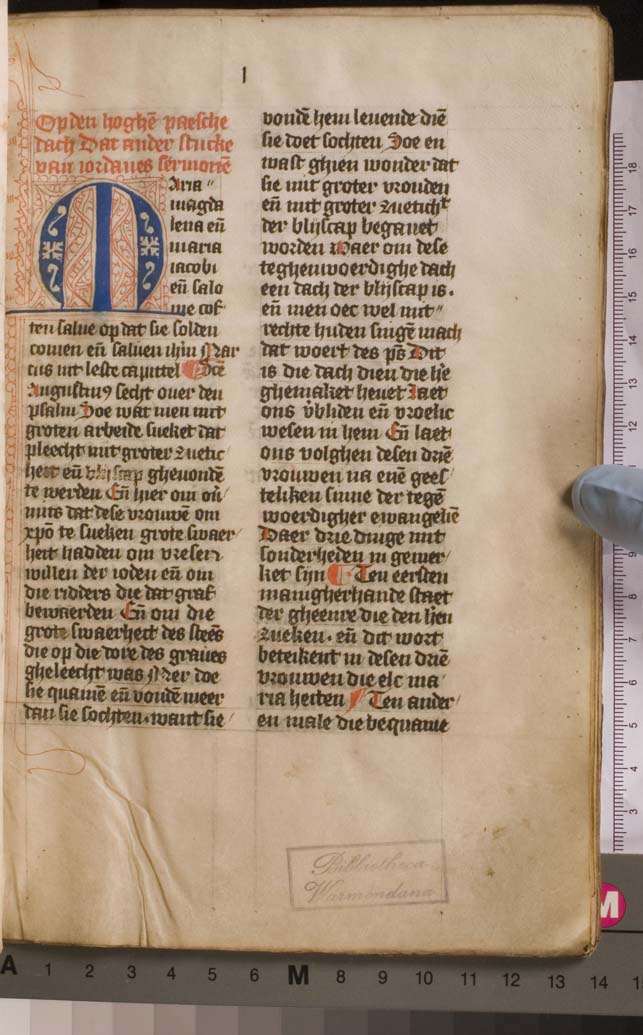 Op den hoghē paesche
dach Dat ander stucke
van iordanes sermonē
MAria
magda
lena eñ
maria
iacobi
eñ salo
me cof
ten salue op dat sie solden
comen eñ saluen ihm Mar
cus int leste capittel Sctē
Augustinus secht ouer den
psalm Hoe wat men mit
groten arbeide sueket dat
pleecht mit groter zuetic
heit eñ blijscap gheuondē
te werden Eñ hier om
mits dat dese vrouwē om
xpō te sueken grote swaer
heit hadden om vresen
willen der ioden eñ om
die ridders die dat graf
bewaerden Eñ om die
grote swaerheit des steēs
die op die dore des graues
gheleecht was Mer doe
sie quamē eñ vondē meer
dan sie sochten. want sie
I
vondē hem leuende diē
sie doet sochten Doe en
wast ghien wonder dat
sie mit groter vrouden
eñ mit groter zueticht
der blijscap beganet
worden Maer om dese
teghenwoerdighe dach
een dach der blijscap is.
eñ men oec wel mit
rechte huden singē mach
dat woert des ps Dit
is die dach dien die hē
ghemaket heuet Laet
ons vbliden eñ vroelic
wesen in hem Eñ laet
ons volghen desen driē
vrouwen na enē gees
teliken sinne der tegē
woerdigher ewangeliē
Daer drie dinge mit
sonderheden in gemer
ket sijn Ten eersten
manigherhande staet
der gheenre die den hen
zueken. eñ dit wort
beteikent in desen driē
vrouwen die elc ma
ria heiten Ten ander
en male die bequame
Bibliotheca
Warmondana